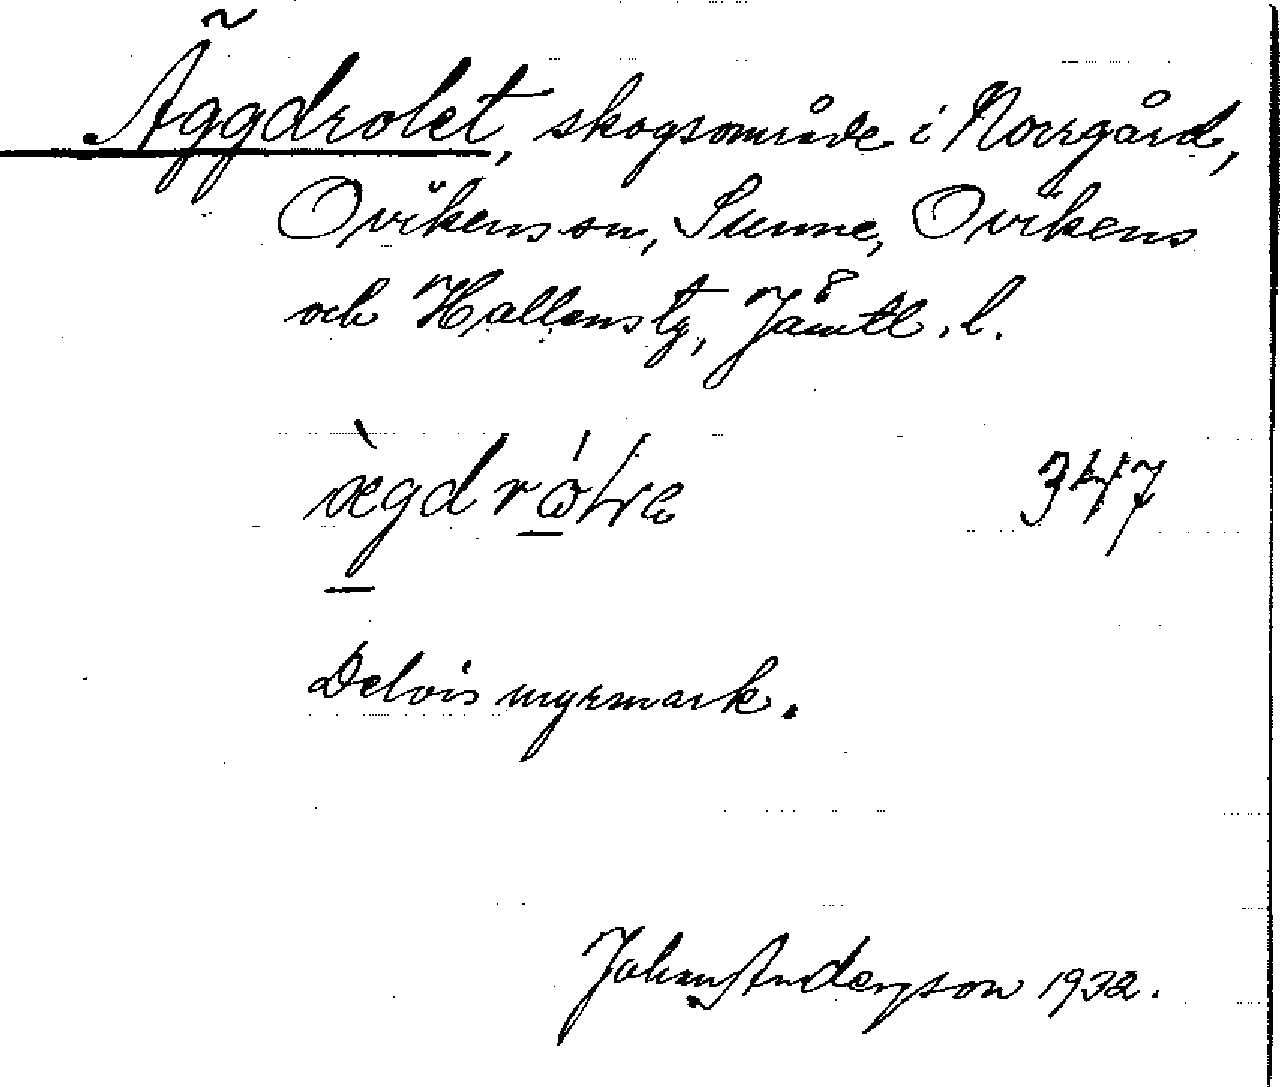 Äggdrolet, skogsområde i Norrgård,
Ovikens sn, Sunne, Ovikens
och Hallens tg, Jämtl. l.
347
Delvis myrmark.
Johan Anderson 1932.